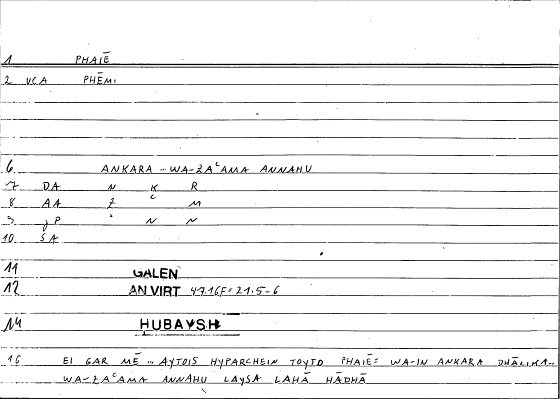 1 PHAIĒ
2 VCA PHĒMI
6 ANKARA ... WA-ZAᶜAMA ANNAHU
7 DA N K R
8 AA Z ᶜ M
9 jP ʾ N N
10 SA
11 GALEN
12 AN VIRT 47.16F = 21.5-6
14 HUBAYSH
16 EI GAR MĒ ... AYTOIS HYPARCHEIN TOYTO PHAIĒ: WA-IN ANKARA DHĀLIKA...
WA-ZAᶜAMA ANNAHU LAYSA LAHĀ HĀDHĀ